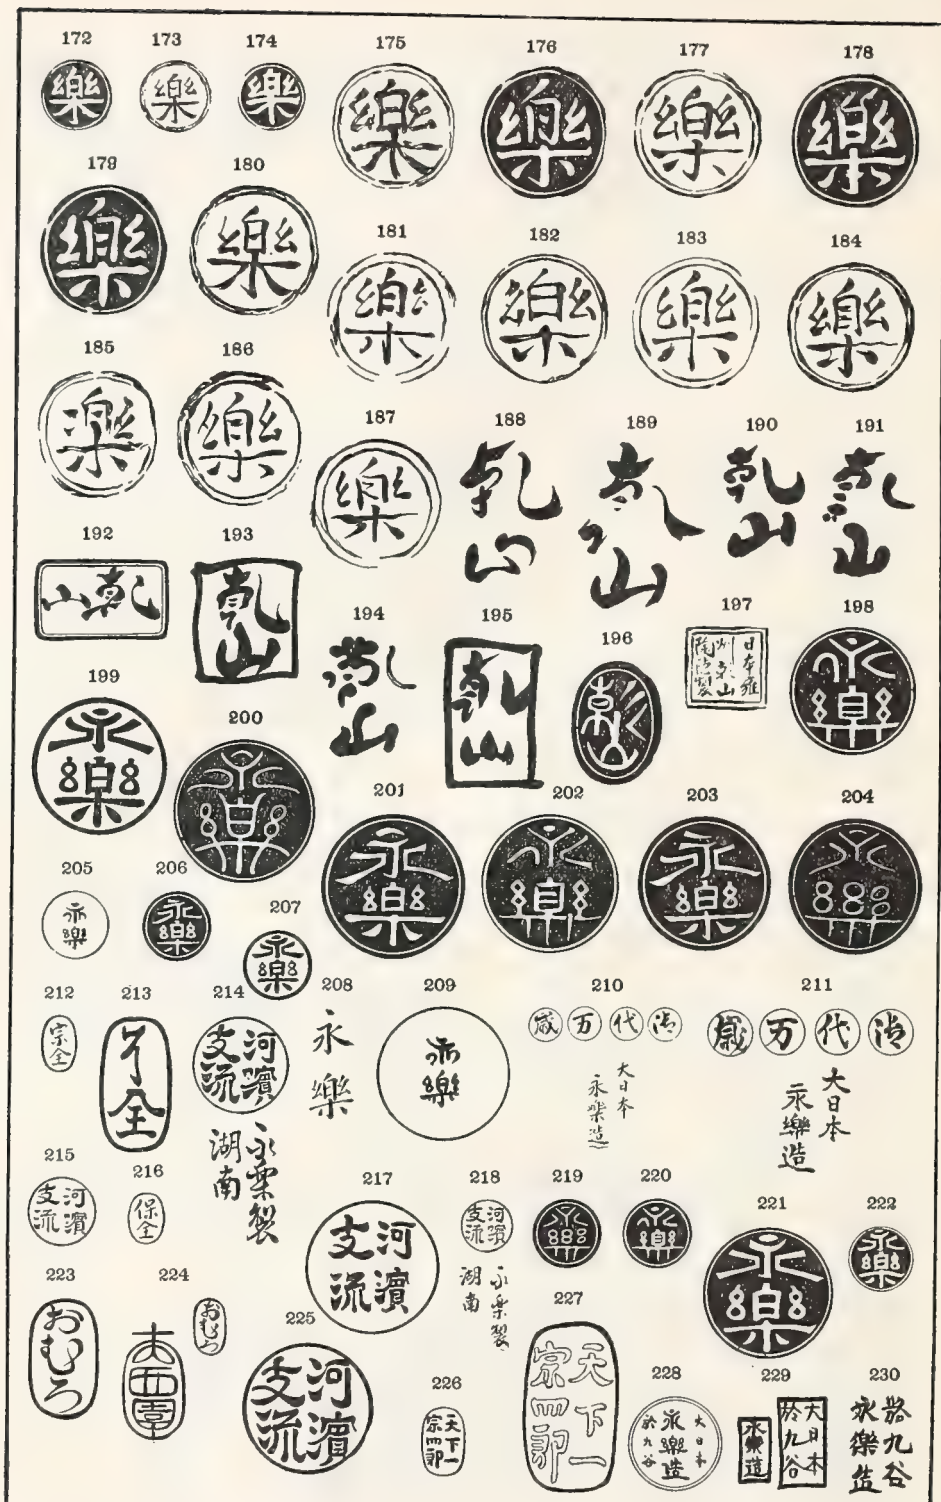 172
樂
173
樂
174
樂
175
樂
176
樂
177
樂
178
樂
179
樂
180
樂
181
樂
182
樂
183
樂
184
樂
185
樂
186
樂
187
樂
188
乾山
189
乾山
190
乾山
191
乾山
192
乾山
193
乾山
194
乾山
195
乾山
196
乾山
197
日本雍
州乾山
陶隠製
198
永樂
199
永樂
200
永樂
201
永樂
202
永樂
203
永樂
204
永樂
205
永樂
206
永樂
207
永樂
208
永樂
209
永樂
210
御代万歳
大日本
永樂造
211
御代万歳
大日本
永樂造
212
宗全
213
了全
214
河濱
支流
永樂製
湖南
215
河濱
支流
216
保全
217
河濱
支流
218
河濱
支流
永樂製
湖南
219
永樂
220
永樂
221
永樂
222
永樂
223
おむろ
224
おむろ
225
河濱
支流
226
天下一
宗四郎
227
天下一
宗四郎
228
大日本
永樂造
於九谷
229
大日本
於九谷
永樂造
230
於九谷
永樂造